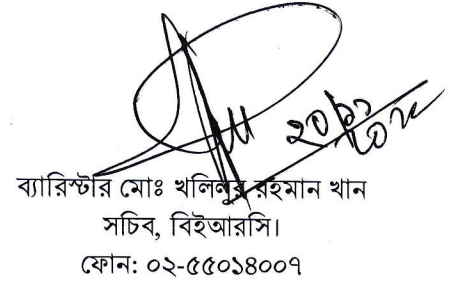 ব্যারিস্টার মোঃ খলিলুর রহমান খান
সচিব, বিইআরসি।
ফোন: ০২-৫৫০১৪০০৭